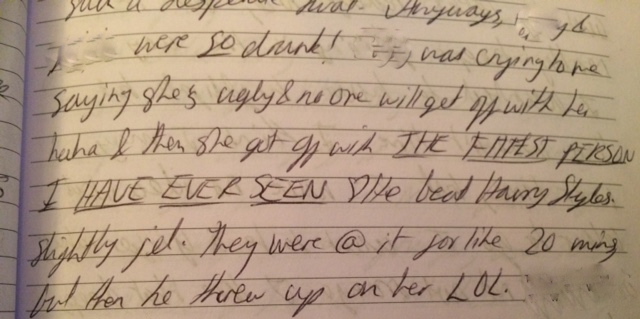 such a desperate twat. Anyways,
were so drunk! was crying to me
saying she's ugly & no one will get off with her
haha & then she got off with THE FITTEST PERSON
I HAVE EVER SEEN He beat Harry Styles.
slightly jel. They were @ it for like 20 mins
but then he threw up on her LOL.